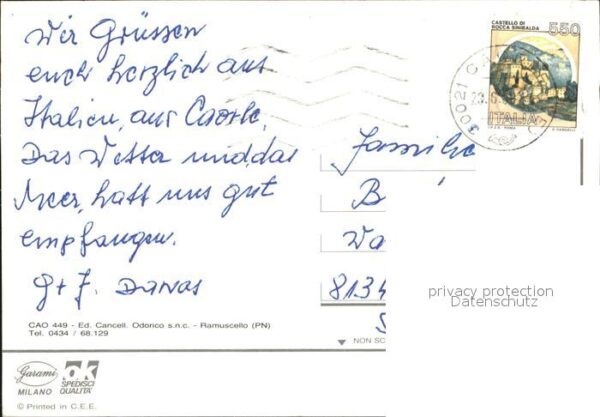 Wir Grüssen
euch herzlich aus
Italien, aus Caorle,
Das Wetter und das
Meer, hatt uns gut
empfangen.
G + J. Danas
CAO 449 - Ed. Cancell. Odorico s.n.c. - Ramuscello (PN)
Tel. 0434 / 68.129
Garami
MILANO
ok
SPEDISCI
QUALITA'
© Printed in C.E.E.
CASTELLO DI
ROCCA SINIBALDA
550
ITALIA
30021 CA
23.6
Familie
B
Wa
8134
S
NON SC
privacy protection
Datenschutz